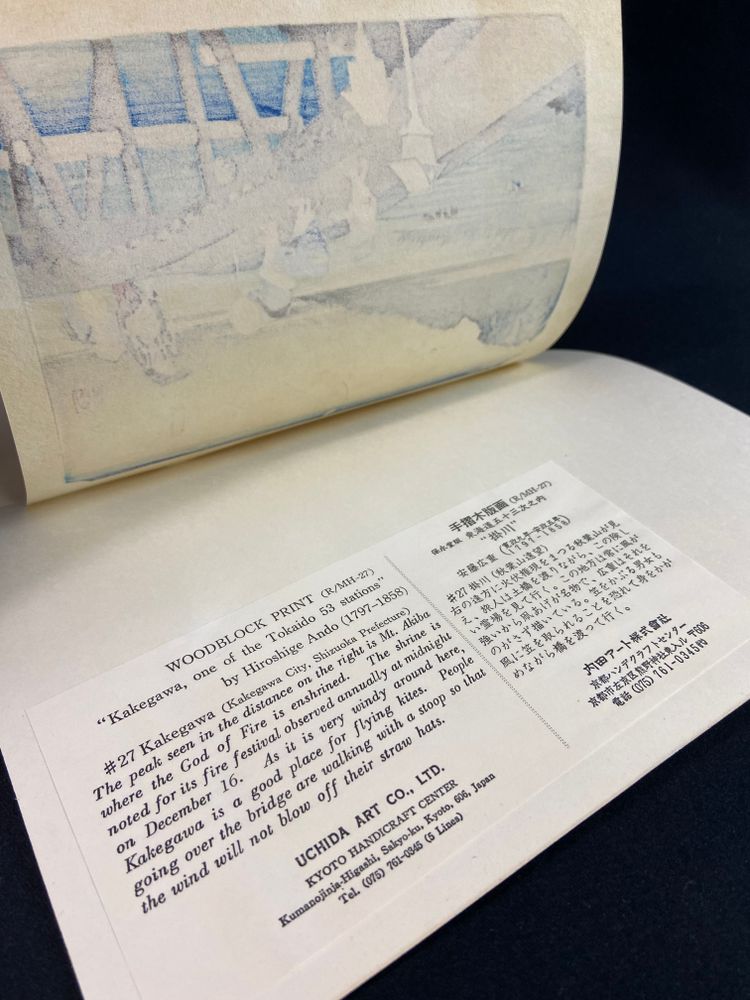 WOODBLOCK PRINT (R/MH-27)
"Kakegawa, one of the Tokaido 53 stations"
by Hiroshige Ando (1797-1858)
#27 Kakegawa (Kakegawa City, Shizuoka Prefecture)
The peak seen in the distance on the right is Mt. Akiba
where the God of Fire is enshrined. The shrine is
noted for its fire festival observed annually at midnight
on December 16. As it is very windy around here,
Kakegawa is a good place for flying kites. People
going over the bridge are walking with a stoop so that
the wind will not blow off their straw hats.
UCHIDA ART CO., LTD.
KYOTO HANDICRAFT CENTER
Kumanojinja-Higashi, Sakyo-ku, Kyoto, 606, Japan
Tel. (075) 761-0345 (5 Lines)
手摺木版画 (R/MH-27)
保永堂版 東海道五十三次之内
"掛川"
安藤広重 (寛政九年-安政五年)
(1797-1858)
#27 掛川 (秋葉山遠望)
右の遠方に火伏権現をまつる秋葉山が見
え、旅人は土橋を渡りながら、この険し
い霊場を見て行く。この地方は常に風が
強いから凧あげが名物で、広重はそれを
のがさず描いている。笠をかぶる男女も
風に笠を取られることを恐れて身をかが
めながら橋を渡って行く。
内田アート株式會社
京都ハンデクラフトセンター
京都市左京区熊野神社東入ル 〒606
電話 (075) 761-0345代